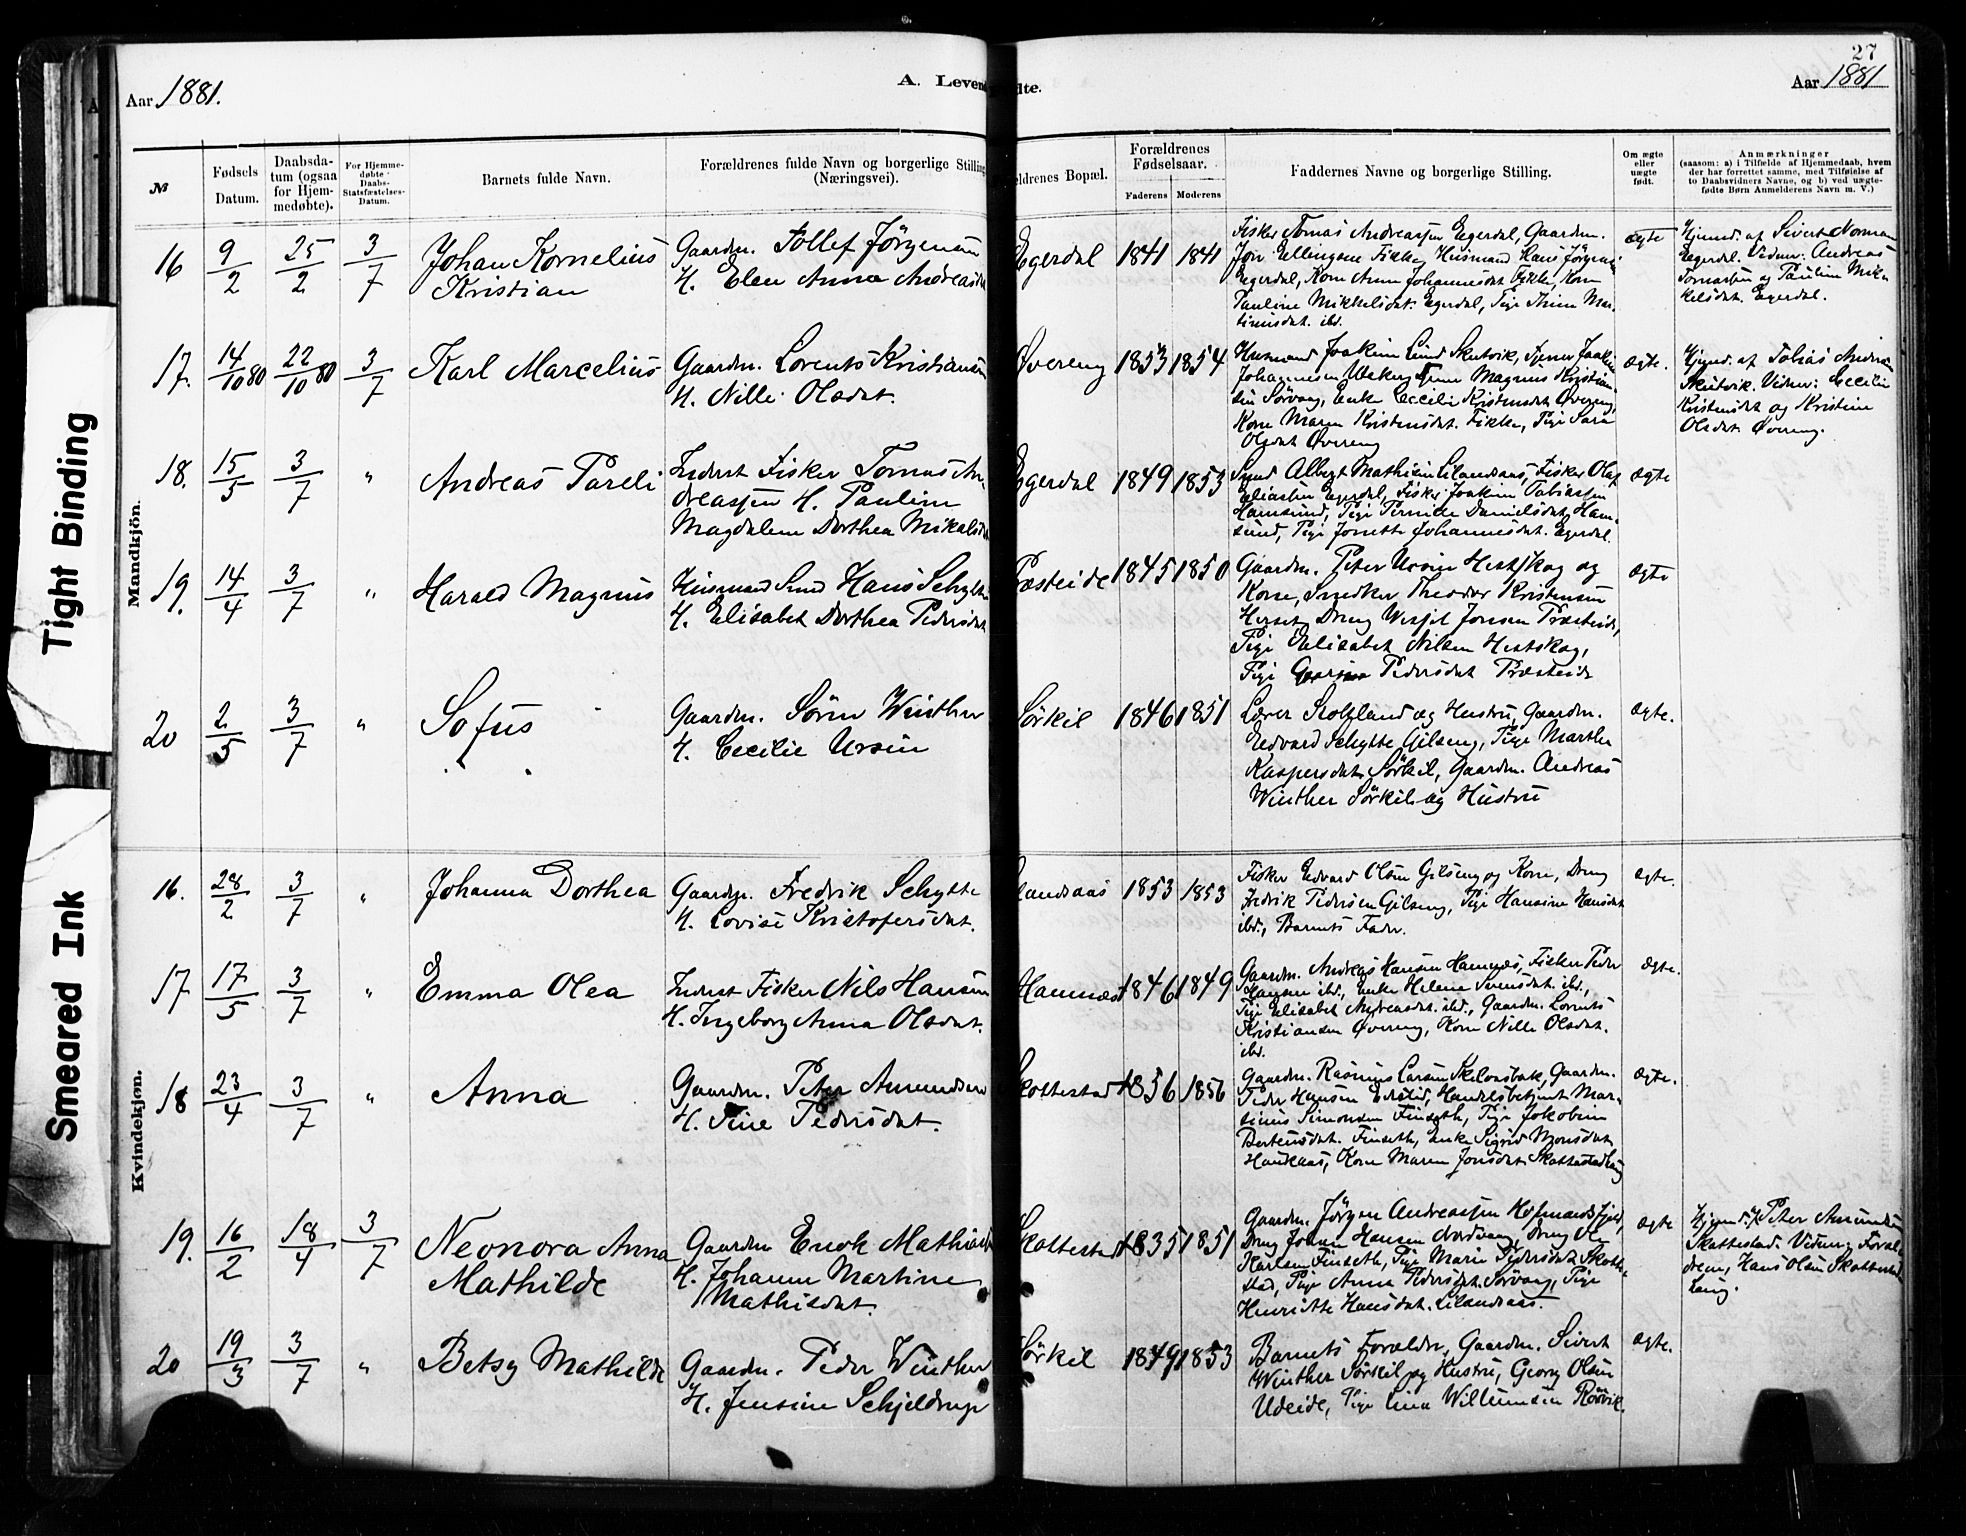 27
Aar 1881.
A. Levend
dte.
Aar 1881
Tight Binding
Smeared Ink
Mandkjön.
Kvindekjøn.
№
Fødsels Datum.
Daabsda-
tum (ogsaa
for Hjem-
medøbte).
For Hjemme-
døbte
Daabs-
Statsfæstelses-
Datum.
Barnets fulde Navn.
Forældrenes fulde Navn og borgerlige Stilling
(Næringsvei).
ldrenes Bopæl.
Forældrenes
Fødselsaar.
Faderens
Moderens
Faddernes Navne og borgerlige Stilling.
Om ægte
eller
uægte
født.
Anmærkninger
(saasom: a) i Tilfælde af Hjemmedaab, hvem
der har forrettet samme, med Tilføielse af
to Daabsvidners Navne, og b) ved uægte-
fødte Børn Anmelderens Navn m. V.)
16 9/2 25/2 3/7 Johan Kornelius
Kristian
Gaardm. Tollef Jörgensen
H. Elen Anna Andreasdt
Egerdal 1841 1841
Fisker Tomas Andreassen Egerdal, Gaardm.
Jön Ellingsen Fikke, Husmand Hans Jörgens
Egerdal, Kone Anne Johannesdat Fikke, Kone
Pauline Mikkelsdat. Egerdal, Pige Trine Mar-
tinusdat. ibd.
ægte
Hjemd. af Sivert Norman
Egerdal. Vidner: Andreas
Tomassen og Pauline Mik-
kelsdat. Egerdal.
17. 14/10 80 22/10 80 3/7 Karl Marcelius
Gaardm. Lorents Kristiansen
H. Nille Olsdat.
Øvereng 1853 1854
Husmand Joakim Lund Skutvik, Tjener Joakim
Johannesen Magnus Kristian-
sen Sørvaag, Enke Cecilie Kristensdat Øvereng,
Kone Maren Kristensdat. Fikke, Pige Sara
Olsdat Øvereng
ægte.
Hjemd. af Tobias Andreas
Skutvik. Vidner: Cecilie
Kristensdat og Kristine
Olsdat. Øvereng.
18. 15/5 3/7 " Andreas Pareli
Inderst Fisker Tomas An-
dreassen H. Pauline
Magdalene Dorthea Mikalsdt
Egerdal 1849 1853
Smed Albert Mathisen Lilandsaas, Fisker Olaf
Eliassen Egerdal, Fisker Joakim Tobiassen
Hamsund, Pige Pernille Danielsdat Ham-
sund, Pige Jonette Johannesdat. Egerdal.
ægte
19. 14/4 3/7 " Harald Magnus
Husmand Smed Hans Schytte
H. Elisabet Dorthea Pedersdat
Præsteide 1845 1850
Gaardm. Peter Ursin Hestskog og
Kone, Snedker Theodor Kristensen
Herset, Dreng Jonsen Præsteide,
Pige Elisabet Nilsen Hestskog,
Pige Pedersdat Præsteide
ægte
20 2/5 3/7 " Sofus
Gaardm. Sören Winther
H. Cecilie Ursin
Sörkil 1846 1851
Lærer Skotland og Hustru, Gaardm.
Edvard Schytte Gilseng, Pige Martha
Kaspersdat Sörkil, Gaardm. Andreas
Winther Sörkil og Hustru
ægte.
16. 28/2 3/7 " Johanna Dorthea
Gaardm. Fredrik Schytte
H. Lovise Kristofersdat.
landsaas 1853 1853
Fisker Edvard Olsen Gilseng og Kone, Dreng
Fredrik Pedersen Gilseng, Pige Hansine Hansdat
ibd., Barnets Fader.
ægte.
17 17/5 3/7 " Emma Olea
Inderst Fisker Nils Hansen
H. Ingeborg Anna Olsdat.
Hamnæs 1846 1849
Gaardm. Andreas Hansen Hamnæs, Fisker Peder
Hansen ibd., Enke Helene Svensdat. ibd.,
Pige Elisabet Andreasdat. ibd., Gaardm. Lorents
Kristiansen Øvereng, Kone Nille Olsdat.
ibd.
ægte.
18 23/4 3/7 " Anna
Gaardm. Peter Amundsen
H. Sine Pedersdat.
Skottestad 1856 1856
Gaardm. Rasmus Larsen Skilvasbak, Gaardm.
Peder Hansen, Handelsbetjent Mar-
sinus Simonsen Finseth, Pige Jakobine
Berteusdat. Finseth, Enke Sigrid Monsdat
Haukaas, Kone Maren Jonsdat Skottestadlæng
ægte.
19. 16/2 18/4 3/7 Neonora Anna
Mathilde
Gaardm Enok Mathias
H. Johanne Martine
Mathisdat.
Skottestad 1835 1851
Gaardm. Jörgen Andreassen Kofmandsfjord,
Dreng Johan Hansen Nordvaag, Dreng Ole
Karlsen Finseth, Pige Marie Pedersdat Skotte-
stad, Pige Anna Pedersdat. Sörvaag, Pige
Henriette Hansdat. Lilandsaas.
ægte
Hjemd. af Peter Amundsen
Skottestad. Vidner: Foræl-
drene, Hans Olsen Skottestad
Læng.
20 19/3 3/7 " Betsy Mathilde
Gaardm. Peder Winther
H. Jensine Schjeldrup
Sörkil 1849 1853
Barnets Forældre, Gaardm. Sivert
Winther Sörkil og Hustru, Georg Olsen
Udeide, Pige Lina Willumsen Rörvik.
ægte.